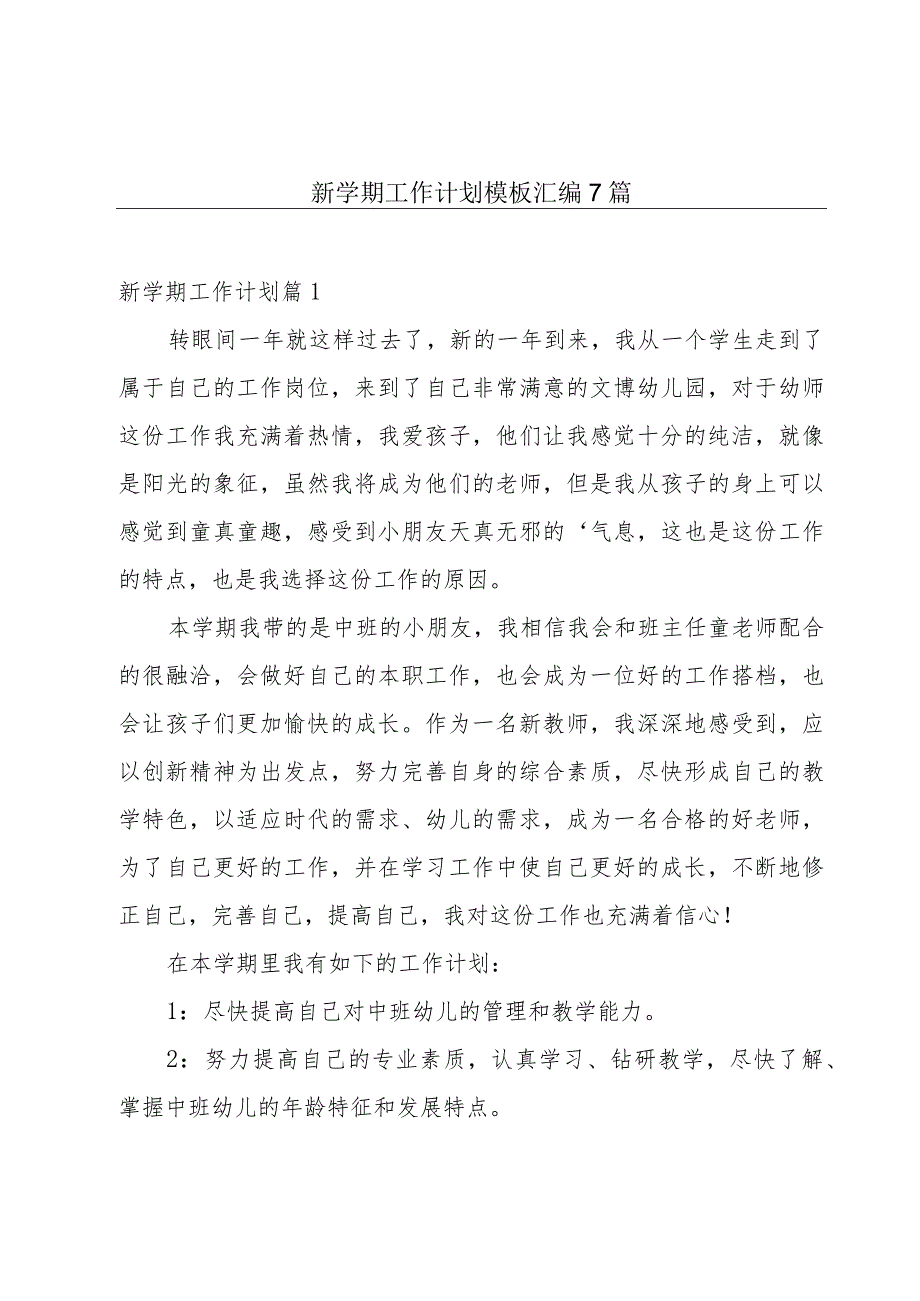 新学期工作计划模板汇编7篇
新学期工作计划篇1
转眼间一年就这样过去了，新的一年到来，我从一个学生走到了
属于自己的工作岗位，来到了自己非常满意的文博幼儿园，对于幼师
这份工作我充满着热情，我爱孩子，他们让我感觉十分的纯洁，就像
是阳光的象征，虽然我将成为他们的老师，但是我从孩子的身上可以
感觉到童真童趣，感受到小朋友天真无邪的‘气息，这也是这份工作
的特点，也是我选择这份工作的原因。
本学期我带的是中班的小朋友，我相信我会和班主任童老师配合
的很融洽，会做好自己的本职工作，也会成为一位好的工作搭档，也
会让孩子们更加愉快的成长。作为一名新教师，我深深地感受到，应
以创新精神为出发点，努力完善自身的综合素质，尽快形成自己的教
学特色，以适应时代的需求、幼儿的需求，成为一名合格的好老师，
为了自己更好的工作，并在学习工作中使自己更好的成长，不断地修
正自己，完善自己，提高自己，我对这份工作也充满着信心！
在本学期里我有如下的工作计划：
1：尽快提高自己对中班幼儿的管理和教学能力。
2：努力提高自己的专业素质，认真学习、钻研教学，尽快了解、
掌握中班幼儿的年龄特征和发展特点。